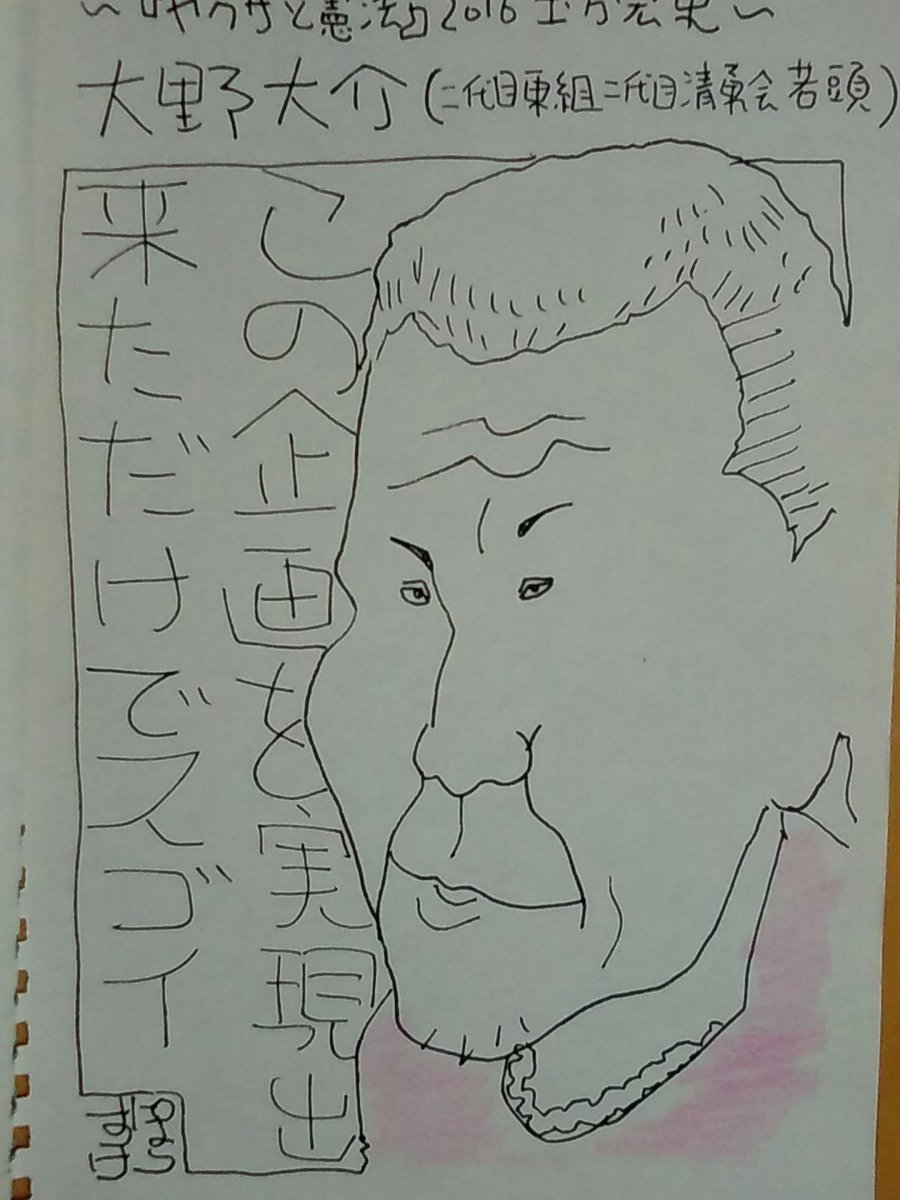 〜『ヤクザと憲法』2016 土方宏史〜
大野大介(二代目東組二代目清勇会若頭)
この企画を実現出
来ただけでスゴイ